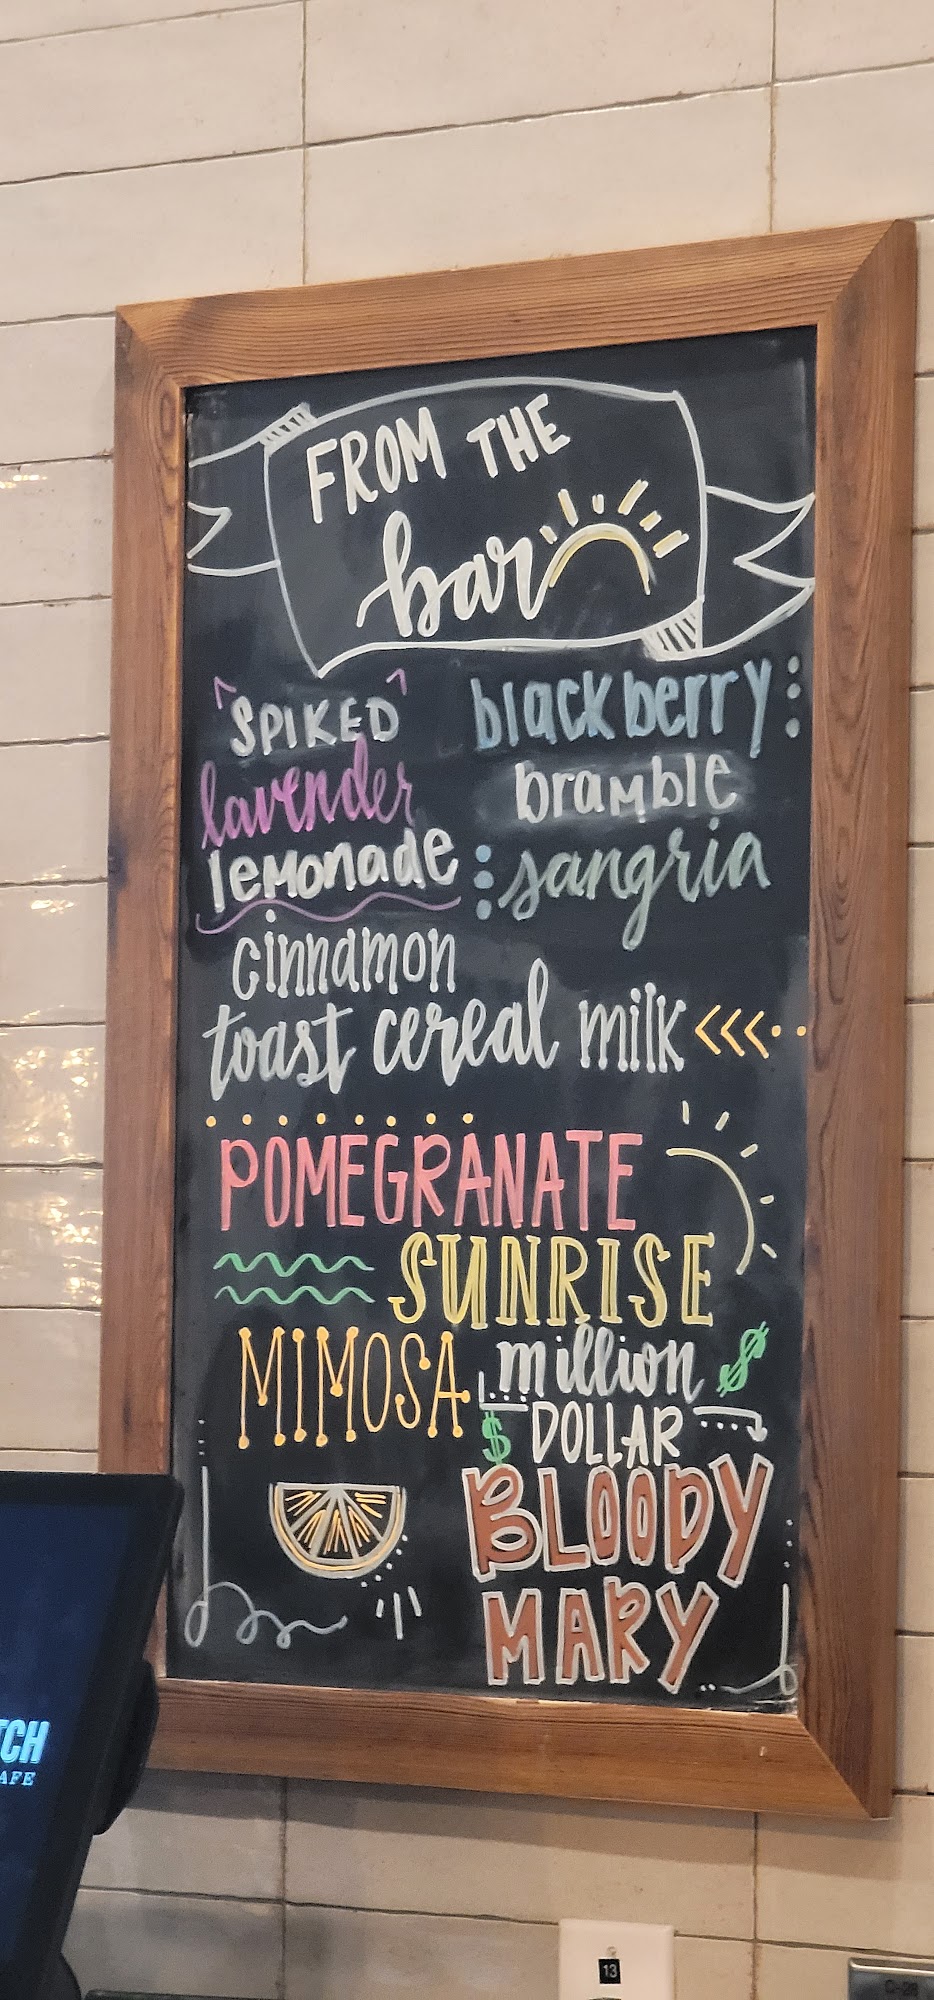 FROM THE
bar
"SPIKED"
lavender
lemonade
blackberry
bramble
sangria
cinnamon
toast cereal milk
POMEGRANATE
SUNRISE
MIMOSA
million $
$ DOLLAR
BLOODY
MARY
TCH
AFE
13